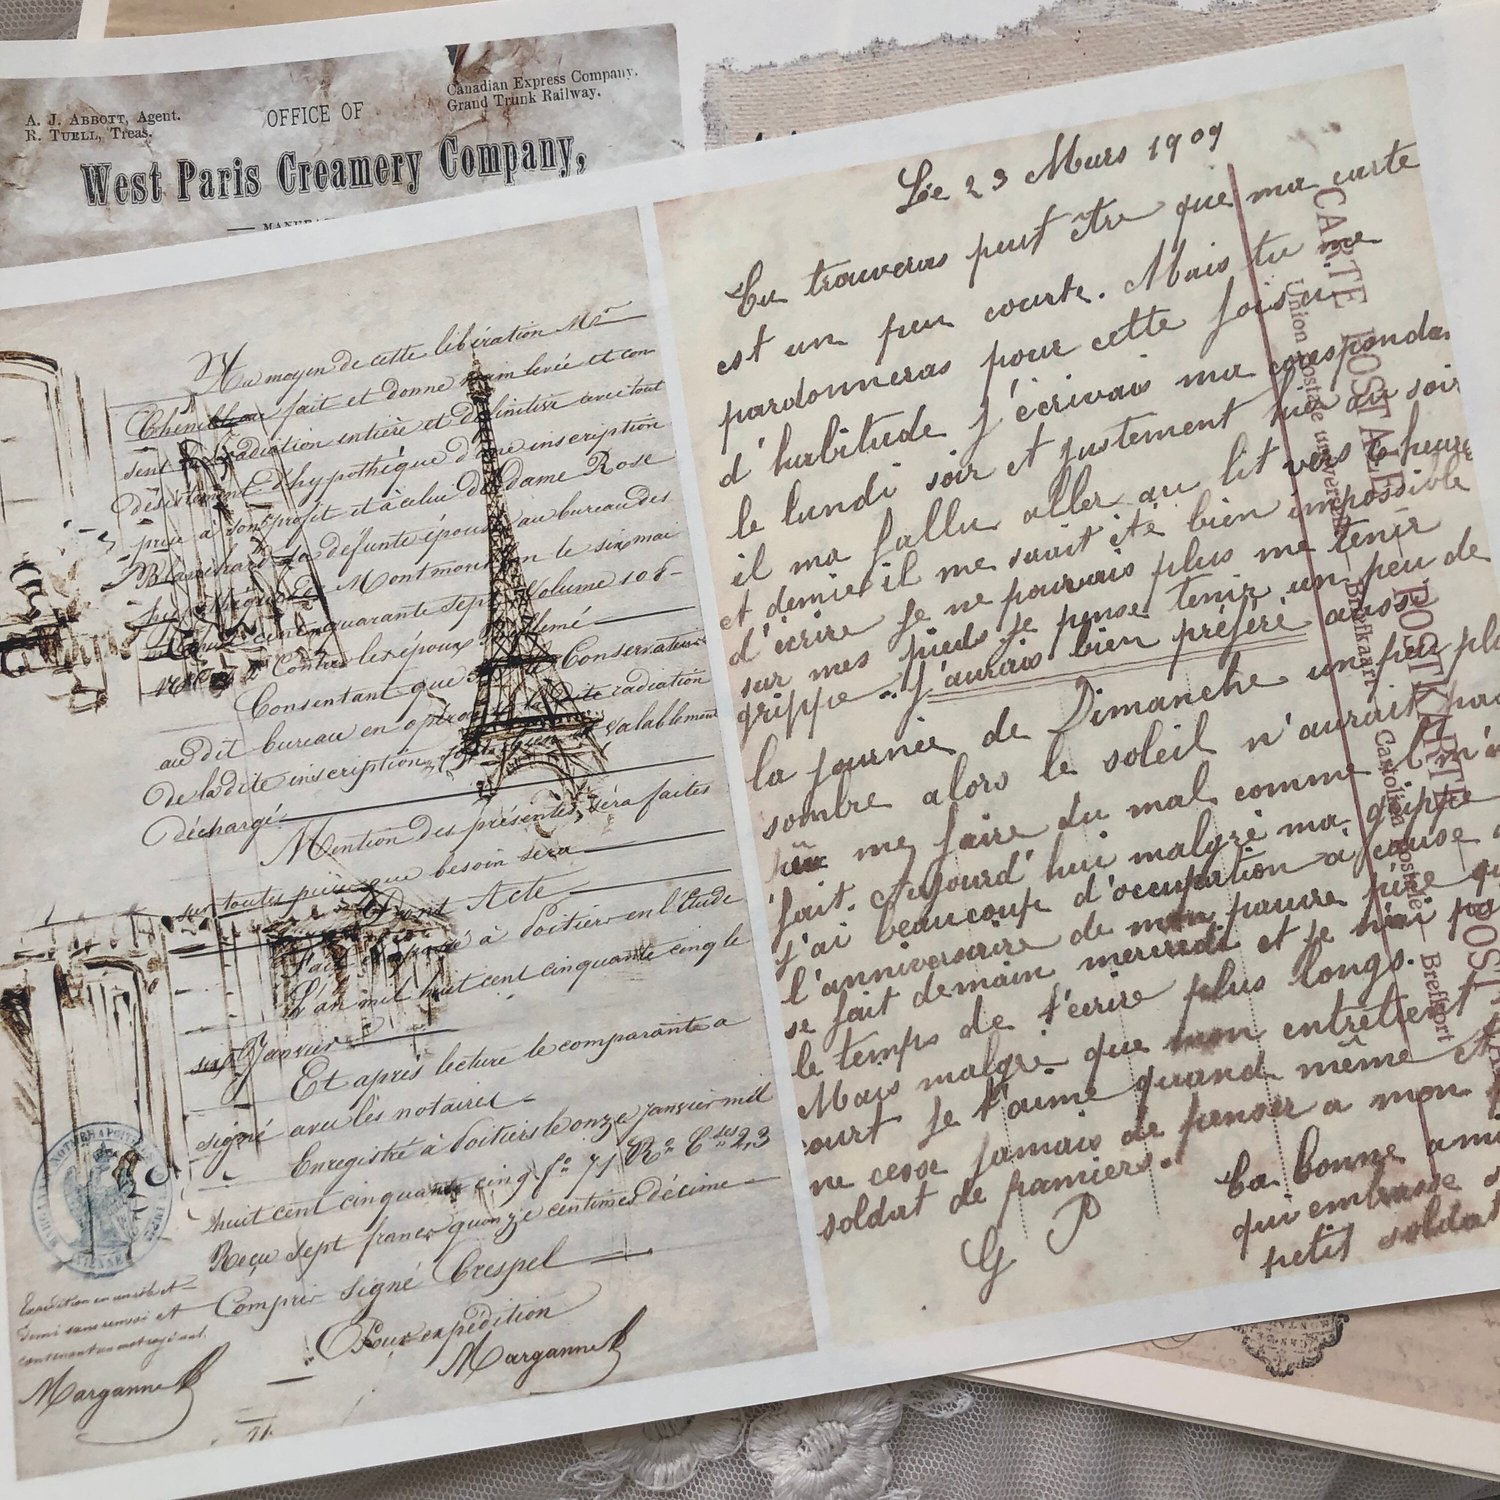 A. J. ABBOTT, Agent.
R. TUELL, Treas.
OFFICE OF
Canadian Express Company.
Grand Trunk Railway.
West Paris Creamery Company,
Au moyen de cette libération Mr
fait et donne main levée et con
sent radiation entière et définitive avec tout
désistement d'hypothèque d'une inscription
prise à son profit et à celui de dame Rose
Blanchard sa défunte épouse au bureau des
le six mai
cent quarante sept Volume 106
Contre les époux
Consentant que Conservateur
au dit bureau en opérant la dite radiation
de la dite inscription valablement
déchargé.
Mention des présentes sera faites
sur toutes pièces que besoin sera
Dont Acte
Fait à Poitiers en l'Etude
L'an mil huit cent cinquante cinq le
sept Janvier
Et après lecture le comparant a
signé avec les notaires
Enregistré à Poitiers le onze janvier mil
huit cent cinquante cinq fo 71 Ro Cses 2, 3
Reçu sept francs quinze centimes décime
Compris Signé Crespel
Pour expédition
Margannes
Margannes
Le 23 Mars 1909
Tu trouveras peut être que ma carte
est un peu courte. Mais tu me
pardonneras pour cette fois ci
d'habitude j'écrivais ma coresponda
le lundi soir et justement hier au soir
il ma fallu aller au lit vers 6 heure
et demie il me saurait été bien impossible
d'écrire je ne pouvais plus me tenir
sur mes pieds je pense tenir un peu de
grippe. J'aurais bien préféré aussi
la journée de Dimanche un peu plu
sombre alors le soleil n'aurait pas
pû me faire du mal comme il m'a
fait. Aujourd'hui malgré ma grippe
j'ai beaucoup d'occupation à cause d
l'anniversaire de mon pauvre père qu
se fait demain mercredi et je n'ai pas
le temps de t'écrire plus longs.
Mais malgré que mon entretient
court je t'aime quand même et
ne cesse jamais de penser a mon
soldat de pamiers.
G P
Ta bonne ami
qui embrasse s
petit soldat
CARTE POSTALE
Union postale universelle
POSTKARTE
Briefkaart